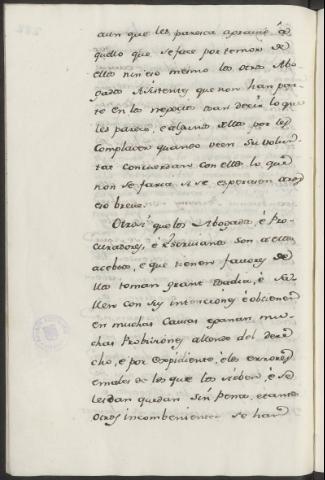 aun que les paresca agravio é a
quello que se face por temor de
ellos nin eso mesmo los otros Abo
gados Asistentes que non han par
te en los negocios osan decir lo que
les parece, e algunos dellos por les
complacer quando veen su volun
tat concuerdan con ellos lo que
non se faria si se
cio breve.
Otrosi que los Abogados, é Pro
curadores, é Escrivanos son a ellos
acebtos, e que tienen favores de
llos toman grant osadia, é sa
llen con sus intenciones e obtienen
en muchas Causas e ganan mu
chas Provisiones allende del dere
cho, e por expidiente é los errores
e males de los que los sirben, é se
les dan quedan sin pena, e tantos
otros incombenientes se han